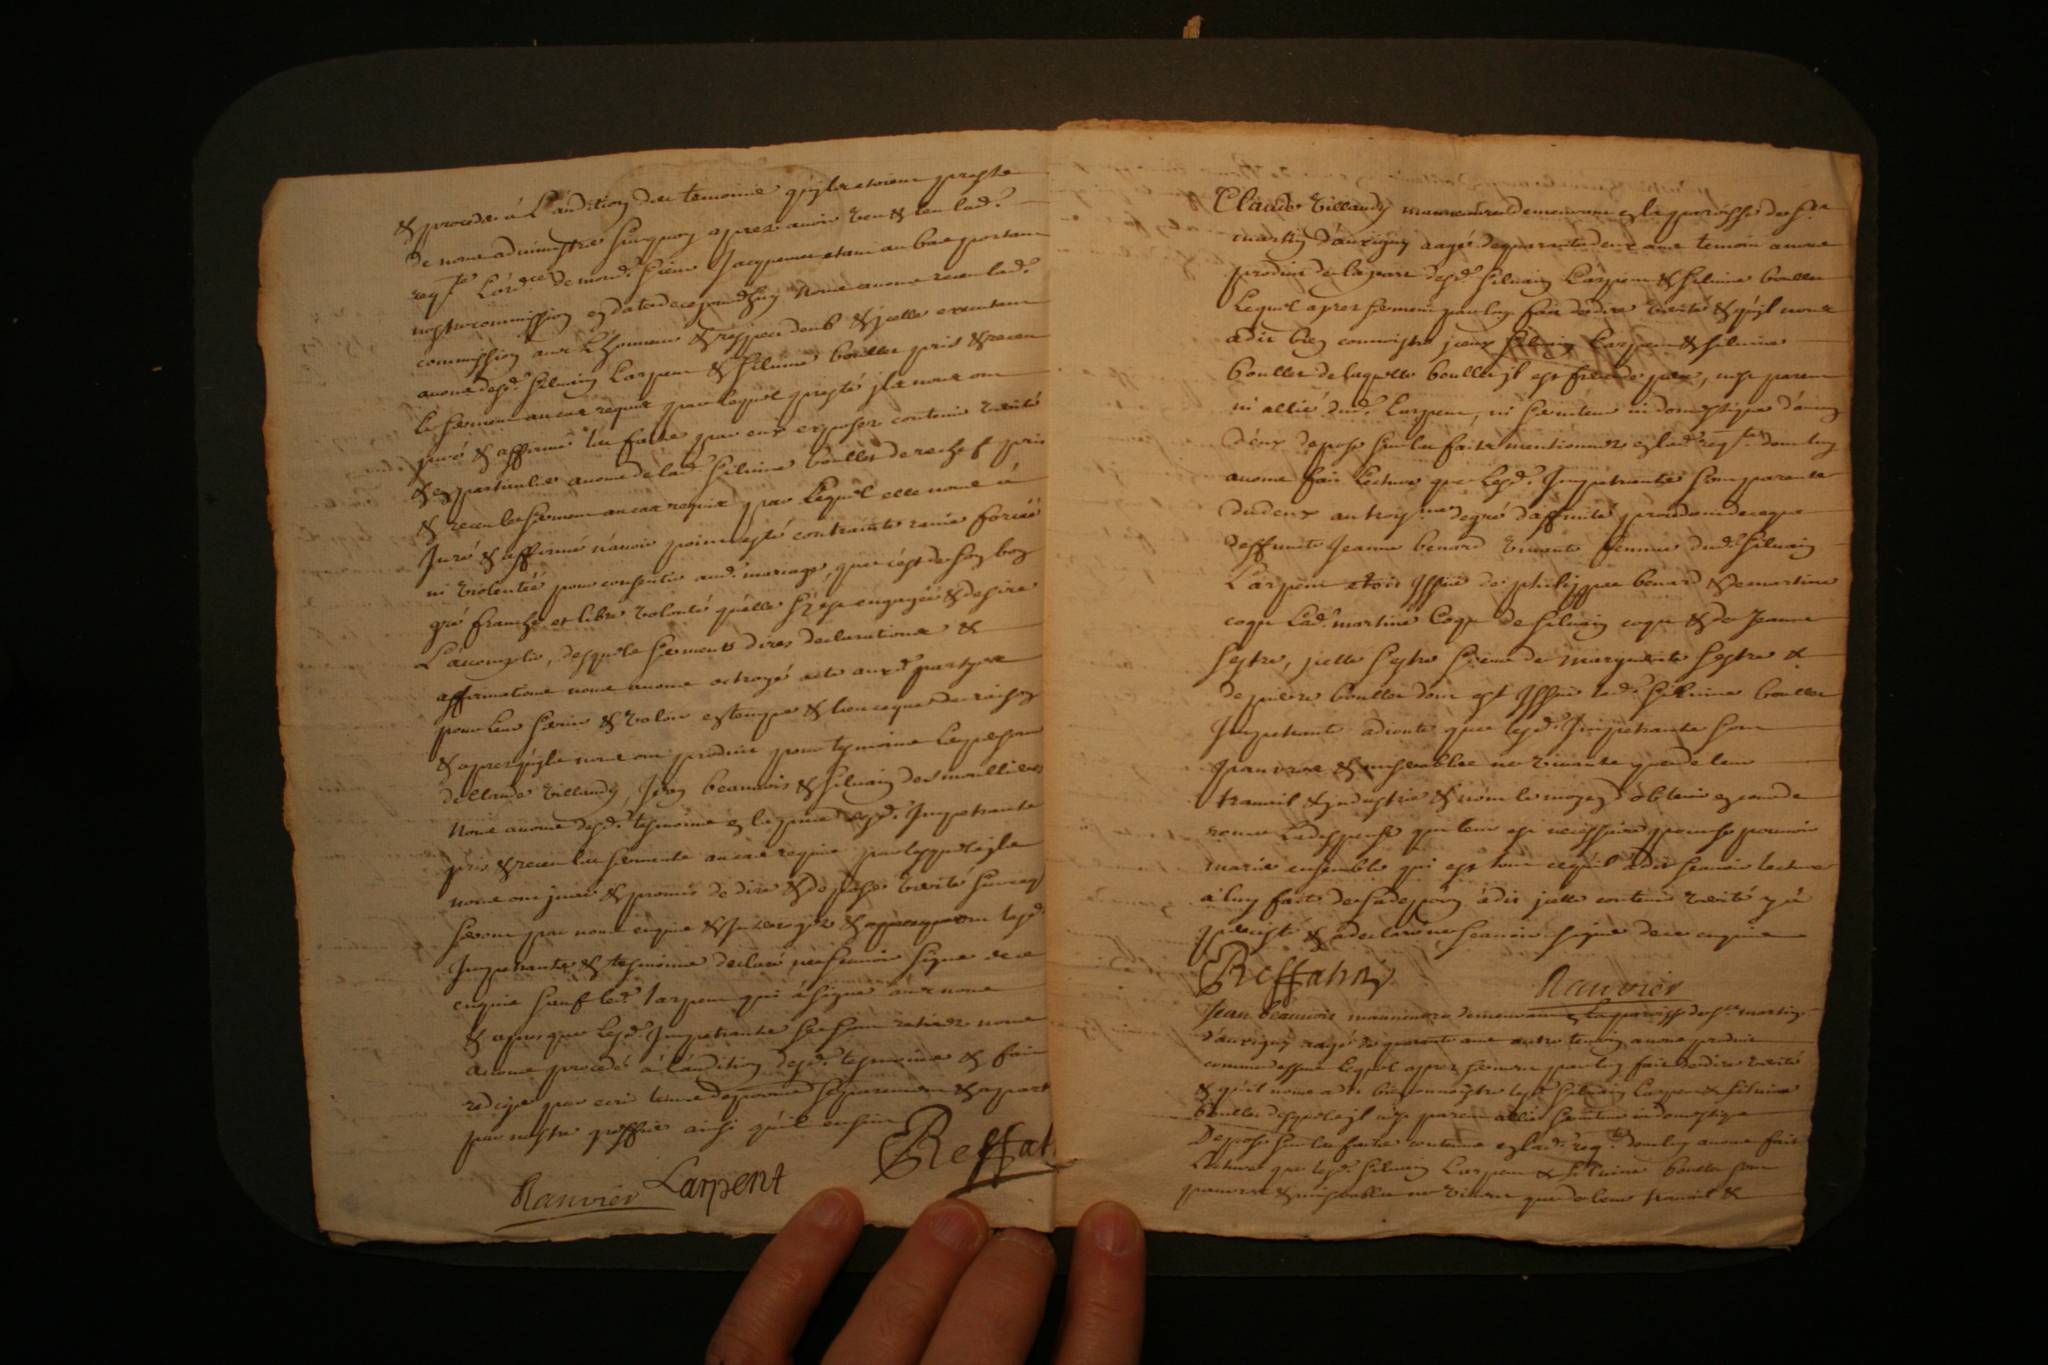 & procedé à L'audition des temoins qu'ils estoient prests
de nous administrer surquoy apres avoir veu & leu lad.
req.te L'ord.ce de mond. sieur Jacquemet estant au bas portant
nostre commission en datte de ce jourd'huy Nous avons receu lad.
commission avec L'honneur & respect deub & jcelle executant
avons desd. Silvain Larpent & Silvine boullet pris & receu
le serment au cas requis par lequel presté jls nous ont
juré & affirmé les faits par eux exposez contenir verité
& en particulier avons de lad. Silvine boullet derechef pris
& receu le serment au cas requis par Lequel elle nous à
Juré & affirmé n'avoir point esté contrainte ravie forcée
ni violentée pour consentir aud. mariage, que c'est de son bon
gré franche et libre volonté qu'elle s'y est engagée & desire
L'accomplir, desquels serments dires declarations &
affirmations nous avons octroyé acte auxd. partyes
pour leur servir & valoir en temps & lieu ce que de raison
& apres qu'ils nous ont produit pour tesmoins les personnes
de Claude Villaudy, Jean beauvois & Silvain des moulieres
Nous avons desd. tesmoins en la presence desd. Impetrants
pris & receu les serments au cas requis par lesquels jls
nous ont juré & promis de dire & deposer verité sur ce qu'ils
seront par nous enquis & Interrogéz & apres que lesd.
Impetrants & tesmoins ont declaré ne sçavoir signer de ce
enquis sauf led. Larpent qui à signé avec nous
& apres que lesd. Impetrants se sont retirez nous
avons procédé à l'audition desd. tesmoins & fait
rediger par ecrit leurs depositions separement & apart
par nostre greffier ainsi qu'il ensuit
Ranvier Larpent Reffat
Claude Villaudy manoeuvre demeurant en la paroisse de St
martin d'auxigny aagé de quarante deux ans temoin a nous
produit de la part desd. Silvain Larpent & Silvine boullet
Lequel apres serment par luy fait de dire verité & qu'il nous
a dit bien connoistre jceux Silvain Larpent & Silvine
boullet de laquelle boullet jl est, n'est parent
ni allié dud. Larpent, ni serviteur ni domestique d'aucun
d'eux depose sur les faits mentionnez en lad. req.te dont luy
avons fait Lecture que lesd. Impetrants sont parents
du deux au trois.me degré d'affinité procedant de ce que
deffunte Jeanne benard vivante femme dud. Silvain
Larpent etoit Issüe de philippe benard & de martine
coqu Lad. martine Coqu de Silvain coqu & de Jeanne
sestre, jcelle sestre soeur de marguerite sestre &
de pierre boullet dont est Issüe lad. Silvine boullet
Impetrante adjoute que lesd. Impetrants sont
pauvres & miserables ne vivants que de leur
travail & industrie & n'ont le moyen d'obtenir en cour de
rome La dispense qui leur est necessaire pour se pouvoir
marier ensemble qui est tout ce qu'il a dit sçavoir lecture
à luy faite de sa depon à dit jcelle contenir verité y à
persisté & a declaré ne sçavoir signer de ce enquis
Reffat Ranvier
Jean beauvois manoeuvre demeurant en la paroisse de St martin
d'auxigny aagé de quarante ans autre temoin a nous produit
comme dessus Lequel apres serment par luy fait de dire verité
& qu'il nous a dit bien connoistre lesd. Silvain Larpent & Silvine
boullet desquels jl n'est parent allié serviteur ni domestique
Depose sur les faits contenus en lad. req.te dont luy avons fait
Lecture que lesd. Silvain Larpent & Silvine boullet sont
pauvres & miserables ne vivant que de leur travail &